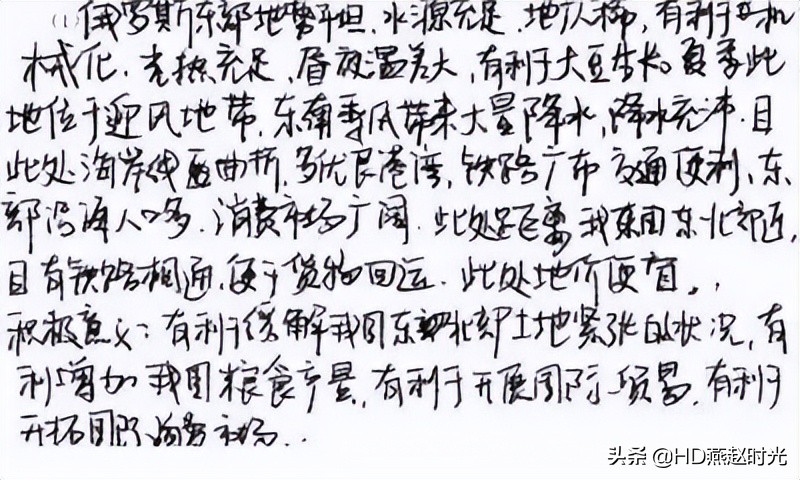 (1)俄罗斯东部地势平坦,水源充足,地广人稀,有利于机
械化.光热充足,昼夜温差大,有利于大豆生长.夏季此
地位于迎风地带,东南季风带来大量降水,降水充沛.且
此处海岸线曲折,多优良港湾,铁路广布交通便利、东
部沿海人口多.消费市场广阔.此处距离我国东北部近,
且有铁路相通,便于货物回运.此处地价便宜。
积极意义:有利于缓解我国东北部土地紧张的状况,有
利增加我国粮食产量,有利于开展国际贸易,有利于
开拓国际消费市场..
头条 @HD燕赵时光